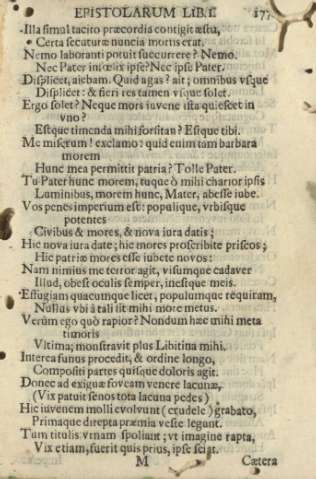 EPISTOLARUM LIB. I. 177
Illa simul tacito præcordia contigit æstu,
Certa secuturæ nuncia mortis erat.
Nemo laboranti potuit succurrere? Nemo.
Nec Pater ipse? Nec ipse Pater.
Displicet, aiebam. Quid agas? ait; omnibus vsque
Displicet: & fieri res tamen vsque solet.
Ergo solet? Neque mors iuvene ista quiescet in
vno?
Estque timenda mihi forsitan? Estque tibi.
Me miserum! exclamo: quid enim tam barbara
morem
Hunc mea permittit patria? Tolle Pater.
Tu Pater hunc morem, tuque ô mihi charior ipsis
Luminibus, morem hunc, Mater, abesse iube.
Vos penes imperium est: populique, vrbisque
potentes
Civibus & mores, & nova iura datis;
Hic nova iura date; hic mores proscribite priscos;
Hic patriæ mores esse iubete novos:
Nam nimius me terror agit, visumque cadaver
Illud, obest oculis semper, inestque meis.
Effugiam quacumque licet, populumque requiram,
Nullus vbi à tali sit mihi more metus.
Verùm ego quò rapior? Nondum hæc mihi meta
timoris
Vltima; monstravit plus Libitina mihi.
Interea funus procedit, & ordine longo,
Compositi partes quisque doloris agit.
Donec ad exiguæ foveam venere lacunæ,
(Vix patuit senos tota lacuna pedes)
Hic iuvenem molli evolvunt (crudele) grabato,
Primaque direpta præmia veste legunt.
Tum titulis vrnam spoliant; vt imagine rapta,
Vix etiam, fuerit quis prius, ipse sciat.
M Cætera